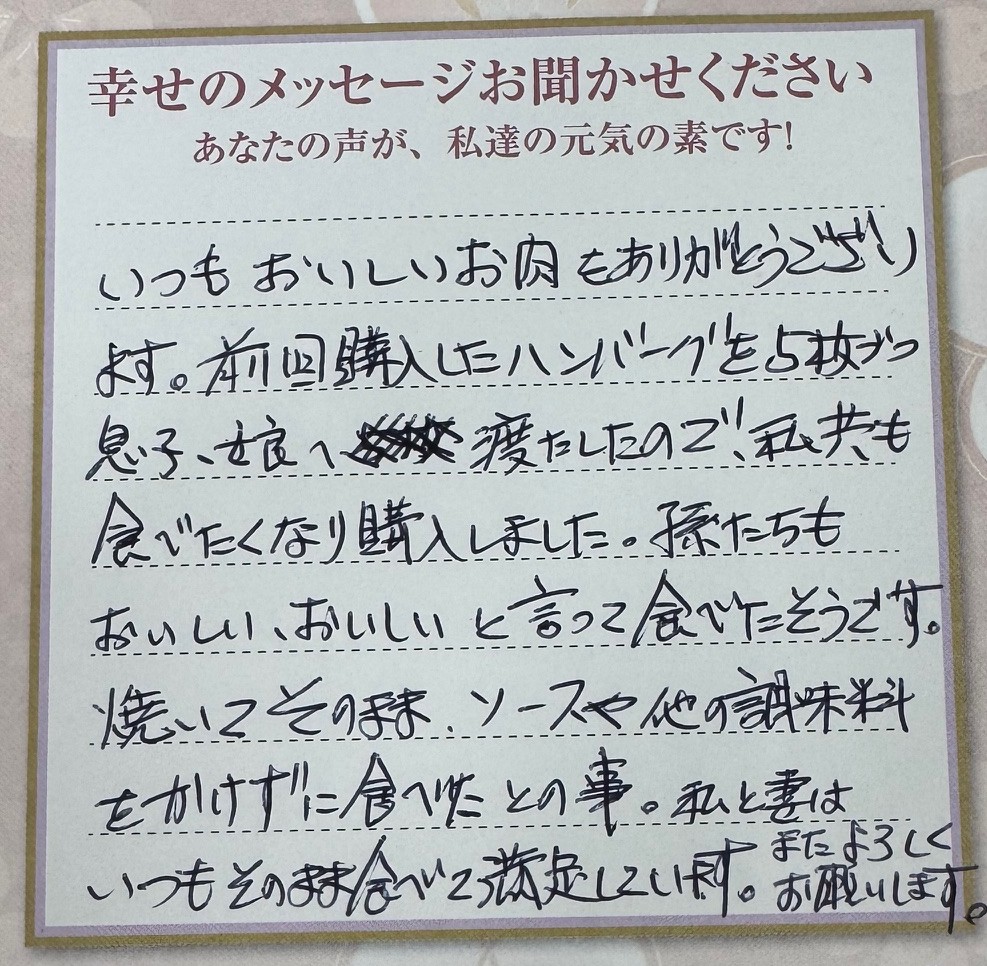 幸せのメッセージお聞かせください
あなたの声が、私達の元気の素です!
いつもおいしいお肉をありがとうござい
ます。前回購入したハンバーグを5枚づつ
息子、娘へ渡たしたので、私共も
食べたくなり購入しました。孫たちも
おいしい、おいしいと言って食べたそうです。
焼いてそのまま、ソースや他の調味料
をかけずに食べたとの事。私と妻は
いつもそのまま食べて満足しています。
またよろしく
お願いします。